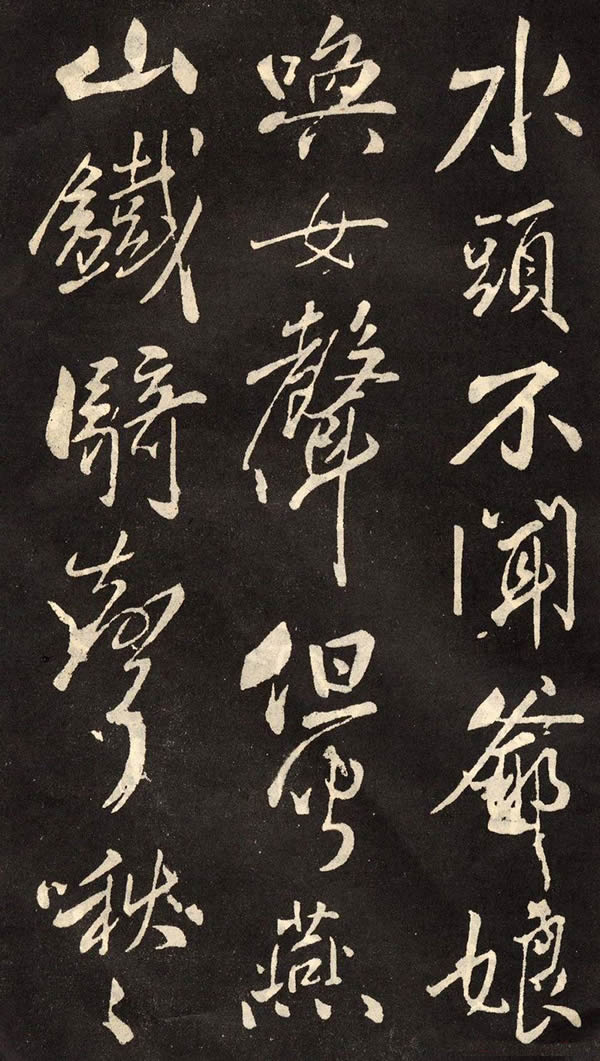 水頭不聞爺娘
喚女聲但聞燕
山鐵騎聲啾々